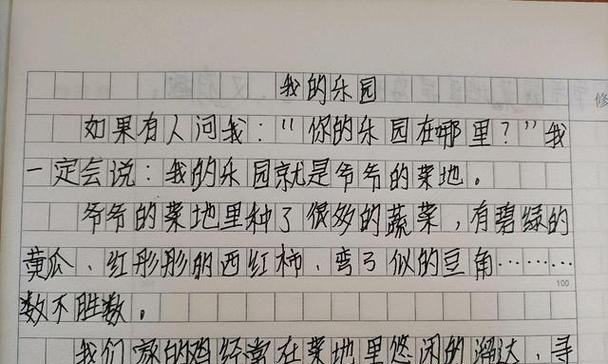 我的乐园
修
如果有人问我：“你的乐园在哪里？”我
一定会说：我的乐园就是爷爷的菜地。
爷爷的菜地里种了很多的蔬菜，有碧绿的
黄瓜、红彤彤的西红柿、弯弓似的豆角………
100
数不胜数。
我们家的鸡经常在菜地里悠闲的溜达，寻